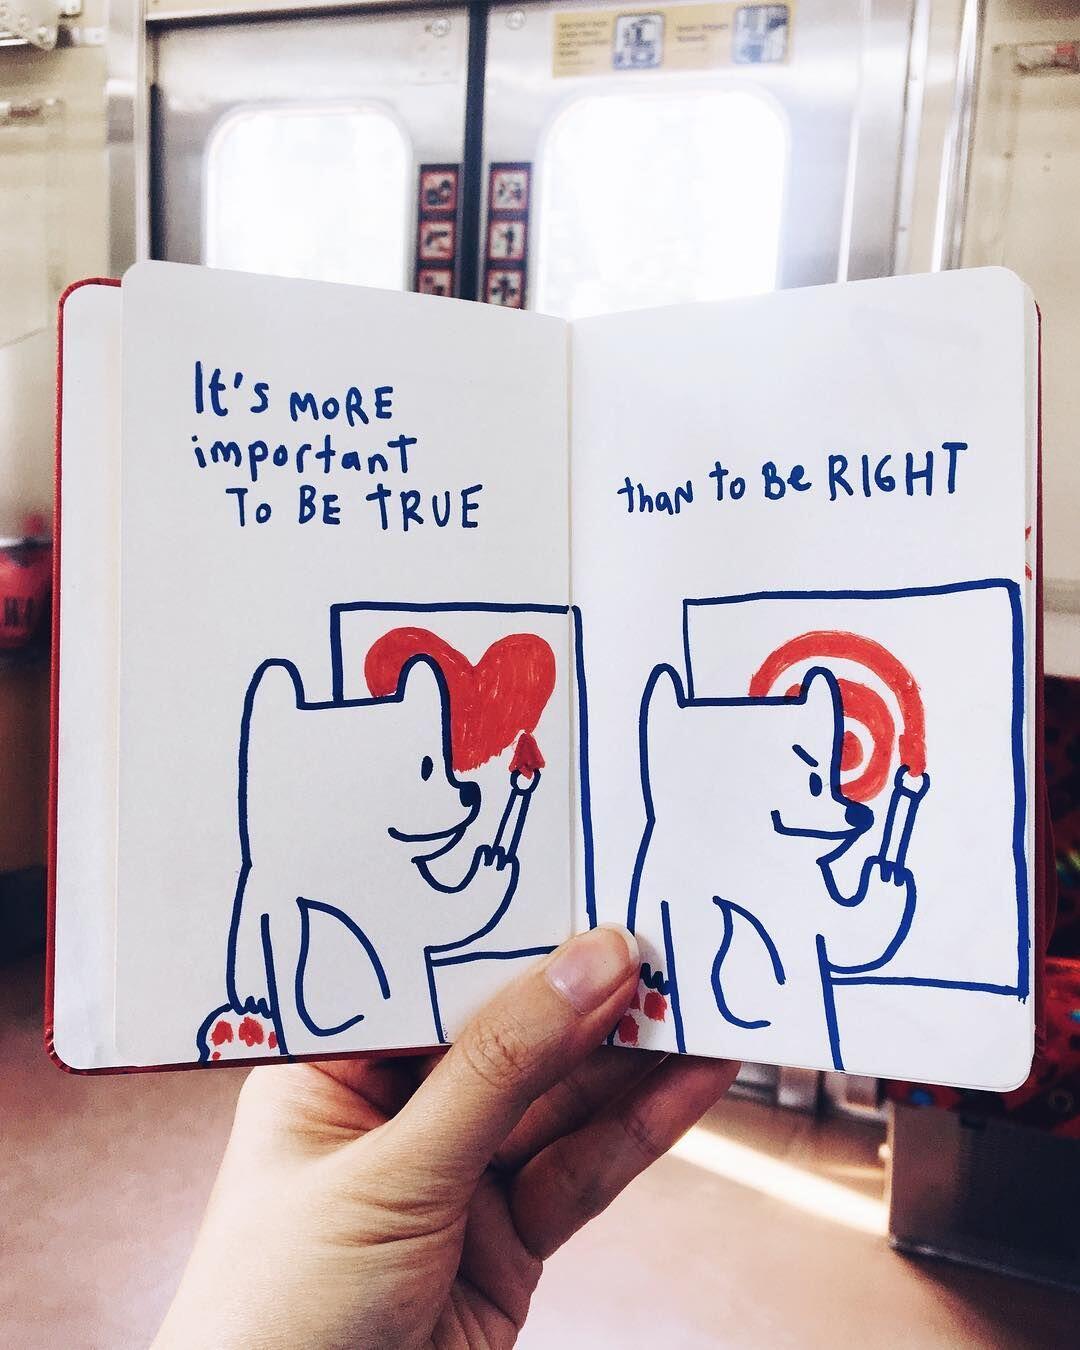 It's MORE
important
TO BE TRUE
than to Be RIGHT